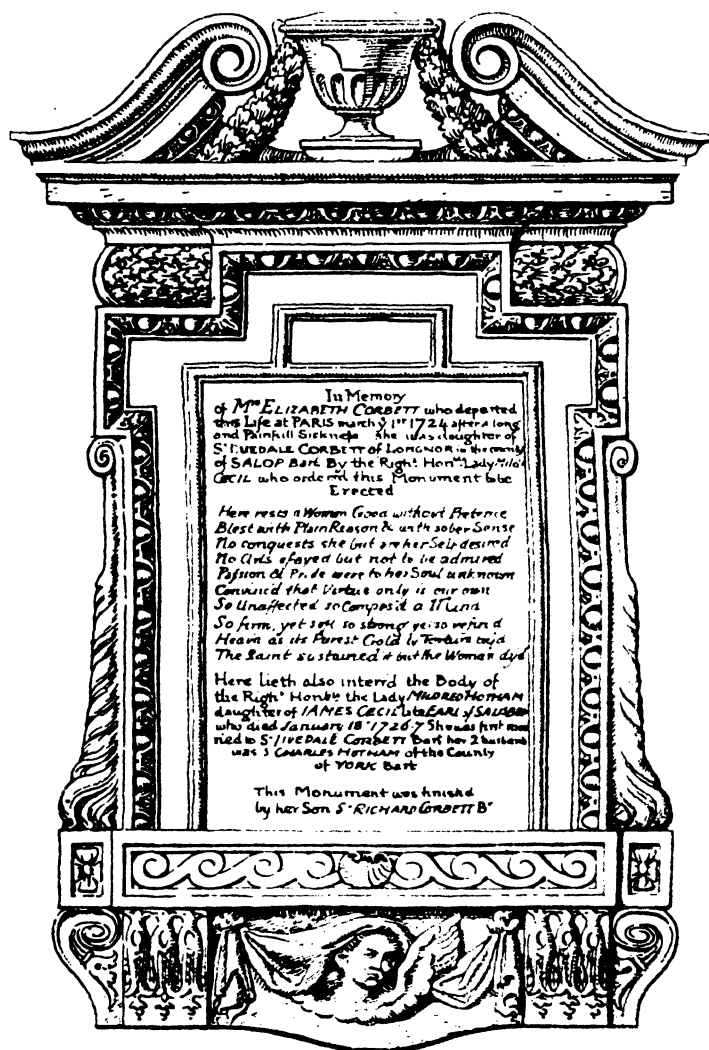 In Memory
of Mrs ELIZABETH CORBETT who departed
this Life at PARIS march ye 1st 1724 after a long
and Painfull Sickness She was daughter of
Sr UVEDALE CORBETT of LONGNOR in the county
of SALOP Bart. By the Right Honble Lady Mildd
CECIL who orderd this Monument to be
Erected
Here rests a Woman Good without Pretence
Blest with Plain Reason & with sober Sense
No conquests she but ore her Self desired
No Arts essayed but not to be admired
Passion & Pride were to her Soul unknown
Convinc'd that Virtue only is our own
So Unaffected so Compos'd a Mind
So firm, yet soft so strong yet so refin'd
Heavn as its Purest Gold by Torture try'd
The Saint sustained it but the Woman dyd
Here lieth also interrd the Body of
the Right Honble the Lady MILDRED HOTHAM
daughter of IAMES CECIL late EARL of
who died January 18th 1726-7 She was first mar
ried to Sr UVEDALE CORBETT Bart her 2 husband
was S CHARLES HOTHAM of the County
of YORK Bart
This Monument was finished
by her Son Sr RICHARD CORBETT Bt